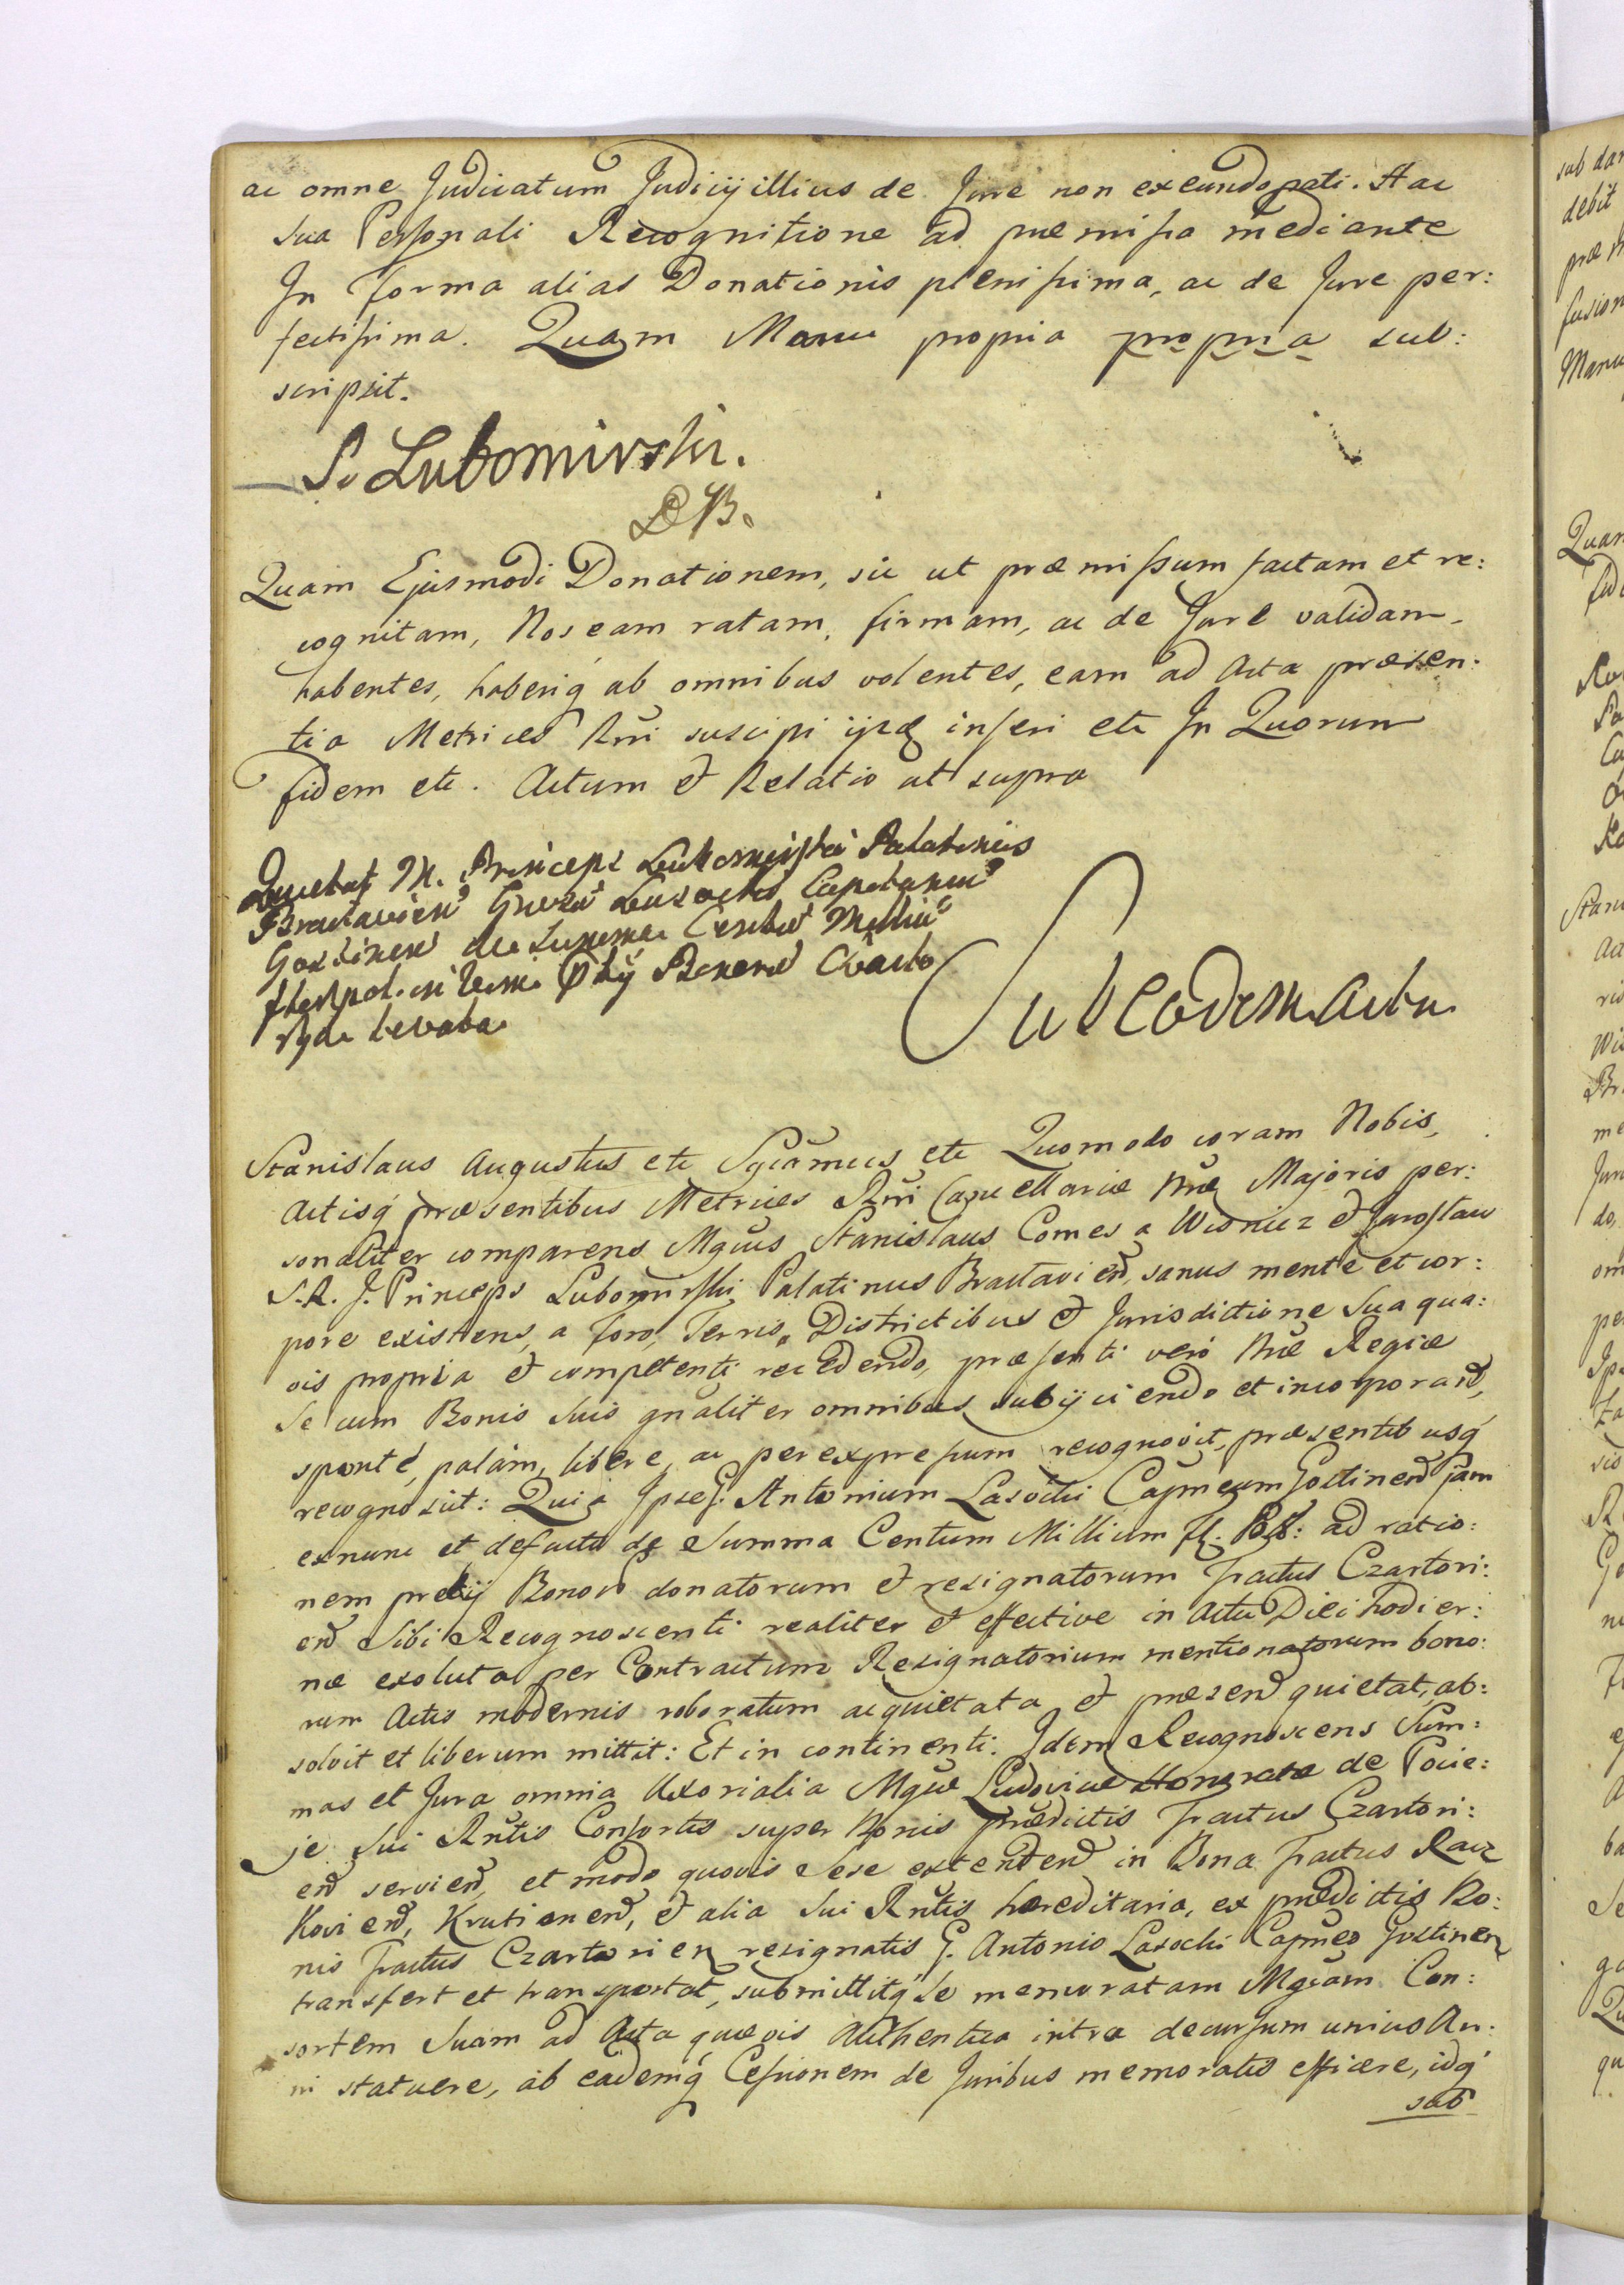 ac omne Judicatum Judicÿ illius de Jure non exeundo pati. Hac
sua Personali Recognitione ad præmissa mediante
In forma alias Donationis plenissima, ac de Jure per:
fectissima. Quam Manu propria propria sub:
scripsit.
S. Lubomirski.
Quam Ejusmodi Donationem, sic ut præmissum factam et re:
cognitam, Nos eam ratam, firmam, ac de Jure validam
habentes, haberiq́ ab omnibus volentes, eam ad Acta præsen:
tia Metrices Rni suscipi ijsq inseri etc In Quorum
fidem etc. Actum et Relatio ut supra
Quietat M. Princeps Lubomirski Palatinus
Braclavien Gnosu Lasocki Capitaneu
Gostinen de Summa Centu Milliu
flor pol. in rem Prÿ Bonoru Czarto
rÿa levata
Sub eodem Actu
Stanislaus Augustus etc Sgcāmus etc Quomodo coram Nobis,
Actisq́ præsentibus Metrices Rni Cancellariæ Nræ Majoris per:
sonaliter comparens Mgcus Stanislaus Comes a Wisnicz et Jaroslaw
S. R. J. Princeps Lubomirski Palatinus Braclavien, sanus mente et cor:
pore existens, a foro, Terris, Districtibus et Jurisdictione Sua qua:
vis propria et competenti recedendo, præsenti verò Nræ Regiæ
Se cum Bonis Suis gnaliter omnibus subijciendo et incorporand,
sponté, palàm, liberè, ac per expressum recognovit, præsentibusq́
recognoscit: Quia Ipse G. Antonium Lasocki Capneum Gostinen jam
exnunc et defacto de Summa Centum Millium Fl. Pol: ad ratio:
nem pretij Bonoru donatorum et resignatorum Tractus Czartori:
en Sibi Recognoscenti realiter et effective in Actu Diei hodier:
næ exoluta per Contractum Resignatorium mentionatorum bono:
rum Actis modernis roboratum acquietata et præsen quietat, ab:
solvit et liberum mittit: Et in continenti. Idem Recognoscens Sum:
mas et Jura omnia Uxorialia Mgcæ Ludovicæ Honorata de Pocie:
je Sui Rntis Consortis super Bonis prædictis Tractus Czartori:
en servien, et modo quovis Sese extenden in Bona Tractus Racz
Kovien, Krutienen, et alia Sui Rntis hæreditaria, ex prædictis Bo:
nis Tractus Czartorien resignatis G. Antonio Lasocki Capneo Gostinen
transfert et transportat, submittitq́ Se memoratam Mgcam Con:
sortem Suam ad Acta quævis Authentica intra decursum unius An:
ni statuere, ab eademq́ Cessionem de Juribus memoratis efficere, idq́
sub